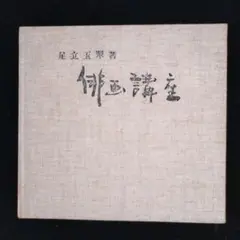 足立玉翠著
俳画講座